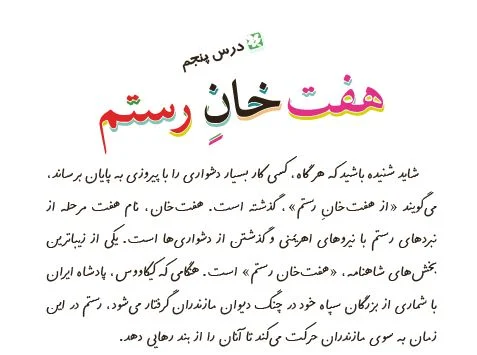 درس پنجم
هفت خانِ رستم
شاید شنیده باشید که هرگاه، کسی کار بسیار دشواری را با پیروزی به پایان برساند،
می‌گویند «از هفت‌خانِ رستم»، گذشته است. هفت‌خان، نام هفت مرحله از
نبردهای رستم با نیروهای اهریمنی و گذشتن از دشواری‌ها است. یکی از زیباترین
بخش‌های شاهنامه، «هفت‌خان رستم» است. هنگامی که کیکاووس، پادشاه ایران
با شماری از بزرگان سپاه خود در چنگ دیوان مازندران گرفتار می‌شود، رستم در این
زمان به سوی مازندران حرکت می‌کند تا آنان را از بند رهایی دهد.